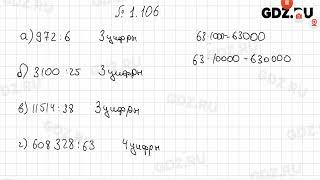 GDZ.RU
№ 1.106
а) 972 : 6 3 цифры 63·1000=63000
б) 3100 : 25 3 цифры 63·10000=630000
в) 11514 : 38 3 цифры
г) 608328 : 63 4 цифры